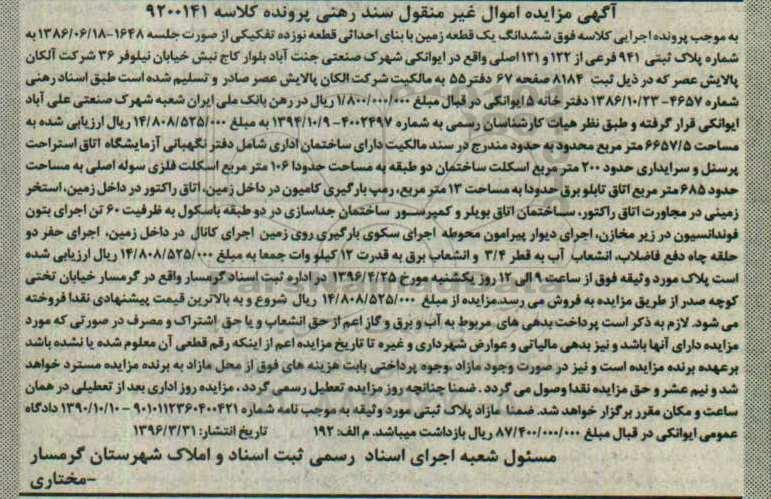 آگهی مزایده اموال غیر منقول سند رهنی پرونده کلاسه ۹۲۰۰۱۴۱
به موجب پرونده اجرایی کلاسه فوق ششدانگ یک قطعه زمین با بنای احداثی قطعه نوزده تفکیکی از صورت جلسه ۱۶۴۸-۱۳۸۶/۰۶/۱۸ به
شماره پلاک ثبتی ۹۴۱ فرعی از ۱۲۲ و ۱۲۱ اصلی واقع در ایوانکی شهرک صنعتی جنت آباد بلوار کاج نبش خیابان نیلوفر ۳۶ شرکت آلکان
پالایش عصر که در ذیل ثبت ۸۱۸۴ صفحه ۶۷ دفتر ۵۵ به مالکیت شرکت الکان پالایش عصر صادر و تسلیم شده است طبق اسناد رهنی
شماره ۴۶۵۷-۱۳۸۶/۱۰/۲۳ دفتر خانه ۵ ایوانکی در قبال مبلغ ۱/۸۰۰/۰۰۰/۰۰۰ ریال در رهن بانک ملی ایران شعبه شهرک صنعتی علی آباد
ایوانکی قرار گرفته و طبق نظر هیات کارشناسان رسمی به شماره ۴۰۰۲۴۹۷-۱۳۹۴/۱۰/۹ به مبلغ ۱۴/۸۰۸/۵۲۵/۰۰۰ ریال ارزیابی شده به
مساحت ۶۶۵۷/۵ متر مربع محدود به حدود مندرج در سند مالکیت دارای ساختمان اداری شامل دفتر نگهبانی آزمایشگاه اتاق استراحت
پرسنل و سرایداری حدود ۲۰۰ متر مربع اسکلت ساختمان دو طبقه به مساحت حدودا ۱۰۶ متر مربع اسکلت فلزی سوله اصلی به مساحت
حدود ۶۸۵ متر مربع اتاق تابلو برق حدودا به مساحت ۱۳ متر مربع، رمپ بارگیری کامیون در داخل زمین، اتاق راکتور در داخل زمین، استخر
زمینی در مجاورت اتاق راکتور، ساختمان اتاق بویلر و کمپرسور ساختمان جداسازی در دو طبقه باسکول به ظرفیت ۶۰ تن اجرای بتون
فوندانسیون در زیر مخازن، اجرای دیوار پیرامون محوطه اجرای سکوی بارگیری روی زمین اجرای کانال در داخل زمین، اجرای حفر دو
حلقه چاه دفع فاضلاب، انشعاب آب به قطر ۳/۴ و انشعاب برق به قدرت ۱۲ کیلو وات جمعا به مبلغ ۱۴/۸۰۸/۵۲۵/۰۰۰ ریال ارزیابی شده
است پلاک مورد وثیقه فوق از ساعت ۹ الی ۱۲ روز یکشنبه مورخ ۱۳۹۶/۴/۲۵ در اداره ثبت اسناد گرمسار واقع در گرمسار خیابان تختی
کوچه صدر از طریق مزایده به فروش می رسد.مزایده از مبلغ ۱۴/۸۰۸/۵۲۵/۰۰۰ ریال شروع و به بالاترین قیمت پیشنهادی نقدا فروخته
می شود. لازم به ذکر است پرداخت بدهی های مربوط به آب و برق و گاز اعم از حق انشعاب و یا حق اشتراک و مصرف در صورتی که مورد
مزایده دارای آنها باشد و نیز بدهی مالیاتی و عوارض شهرداری و غیره تا تاریخ مزایده اعم از اینکه رقم قطعی آن معلوم شده یا نشده باشد
برعهده برنده مزایده است و نیز در صورت وجود مازاد .وجوه پرداختی بابت هزینه های فوق از محل مازاد به برنده مزایده مسترد خواهد
شد و نیم عشر و حق مزایده نقدا وصول می گردد .ضمنا چنانچه روز مزایده تعطیل رسمی گردد ، مزایده روز اداری بعد از تعطیلی در همان
ساعت و مکان مقرر برگزار خواهد شد. ضمنا مازاد پلاک ثبتی مورد وثیقه به موجب نامه شماره ۹۰۱۰۱۱۲۳۶۰۴۰۰۴۲۱ - ۱۳۹۰/۱۰/۱۰ دادگاه
عمومی ایوانکی در قبال مبلغ ۸۷/۴۰۰/۰۰۰/۰۰۰ ریال بازداشت میباشد. م الف: ۱۹۲ تاریخ انتشار: ۱۳۹۶/۳/۳۱
مسئول شعبه اجرای اسناد رسمی ثبت اسناد و املاک شهرستان گرمسار
-مختاری